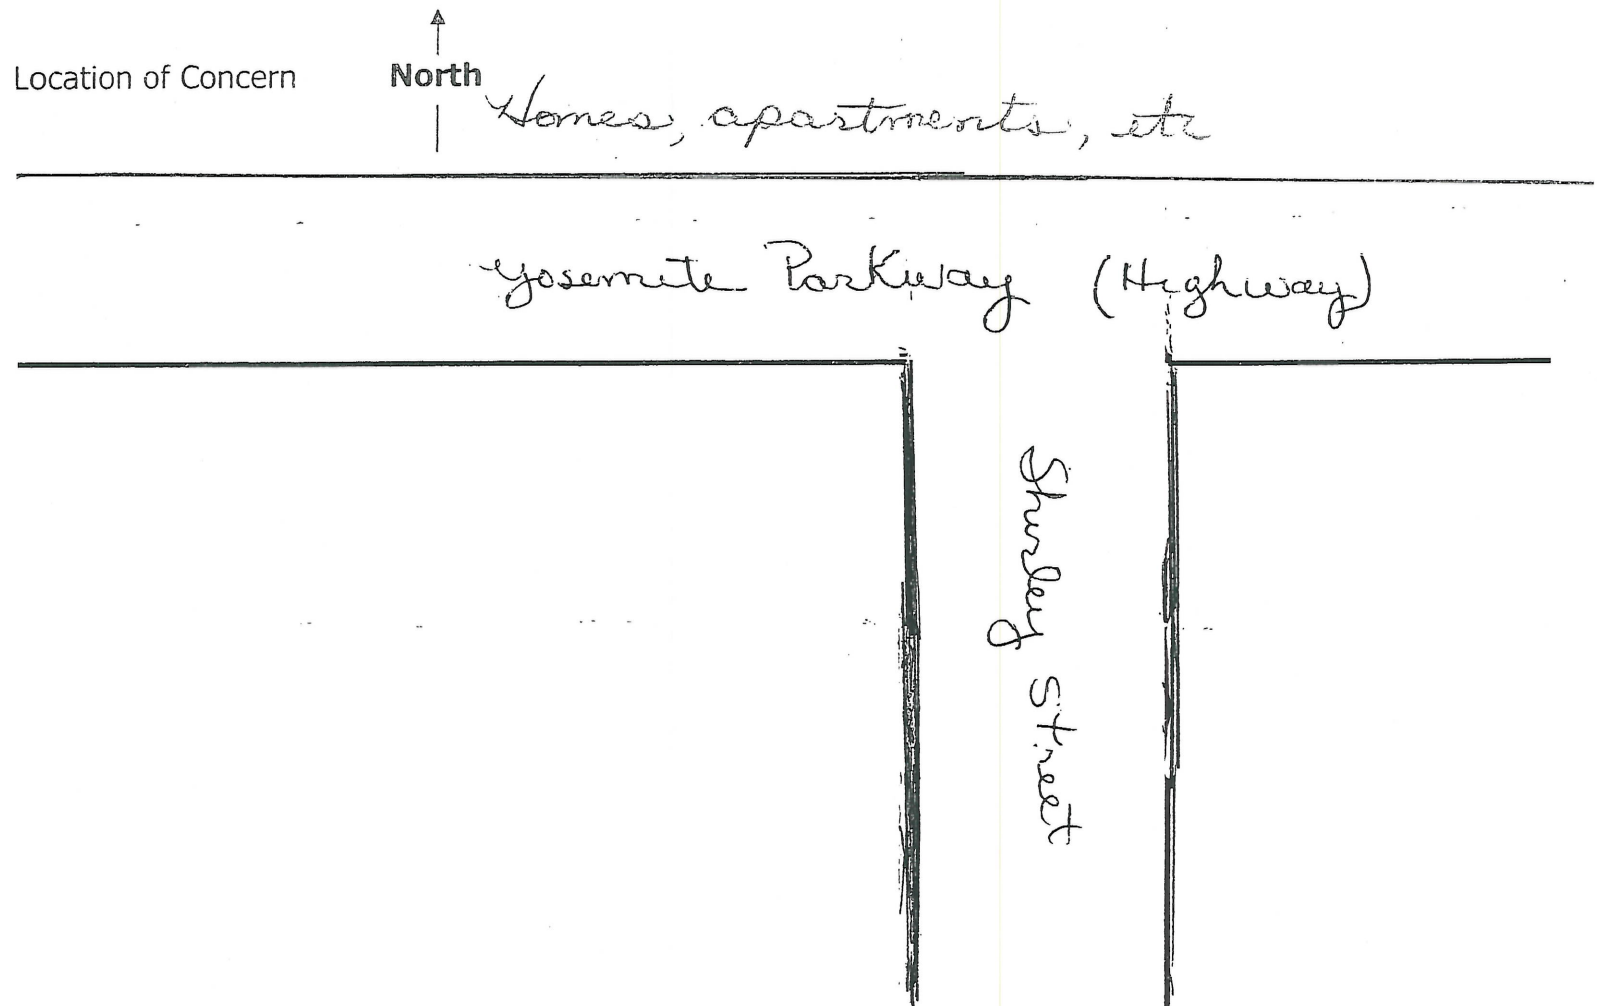 Location of Concern
North
Homes, apartments, etc
Yosemite Parkway (Highway)
Shirley Street